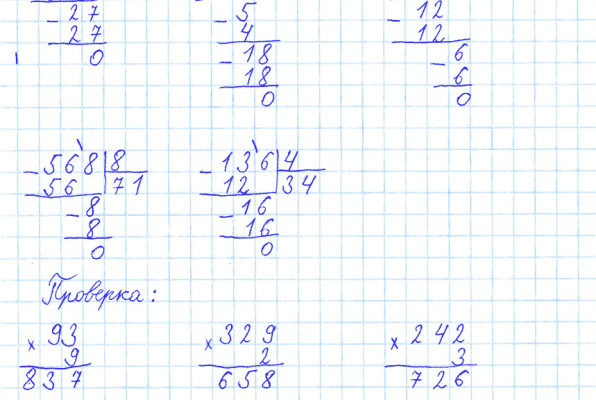 - 27
27
0
- 5
4
- 18
18
0
- 12
12
- 6
6
0
- 568 | 8
56 | 71
- 8
8
0
- 136 | 4
12 | 34
- 16
16
0
Проверка:
× 93
9
837
× 329
2
658
× 242
3
726